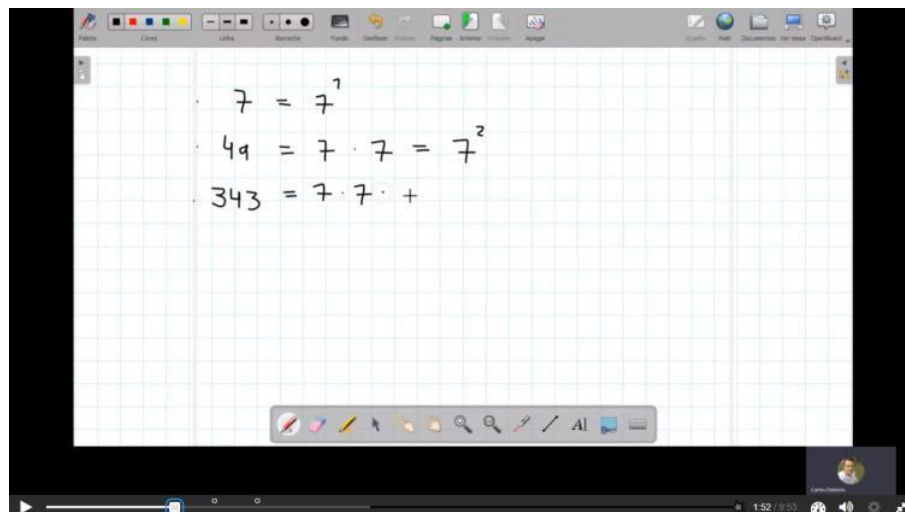 Caneta Cores Linha Borracha Fundo Desfazer Refazer Páginas Anterior Próximo Apagar Quadro Web Documentos Ver mesa OpenBoard
· 7 = 7¹
· 49 = 7 · 7 = 7²
· 343 = 7 · 7 · +
AI
1:52 / 9:53